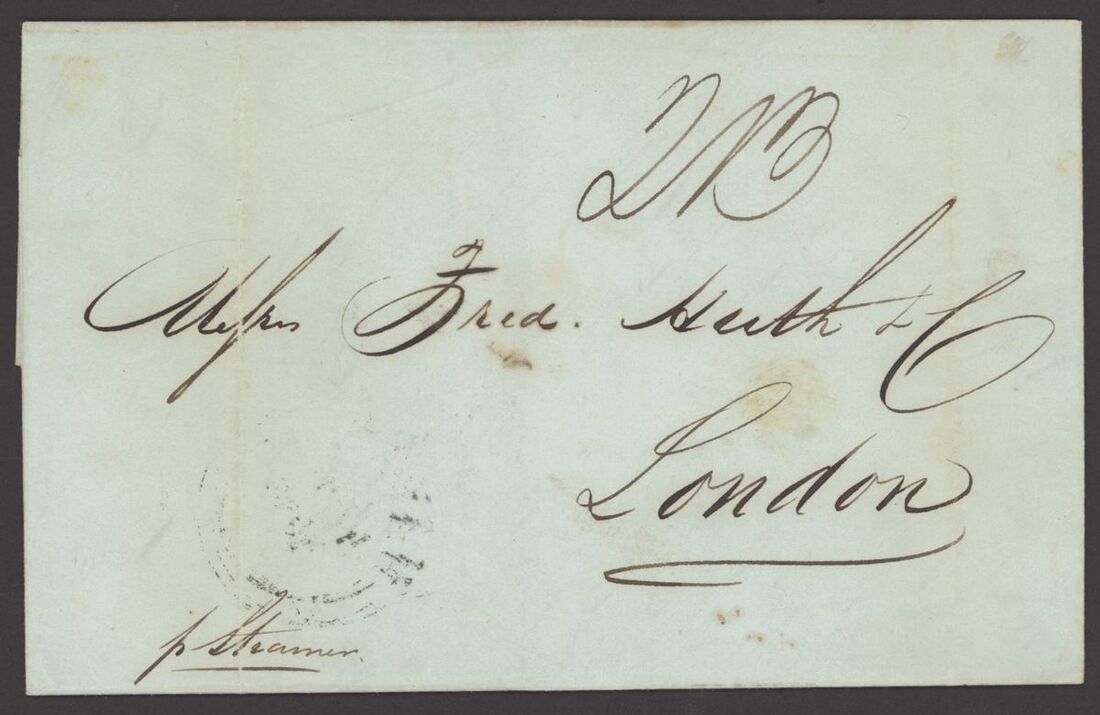 Messrs Fred. Huth & C
London
p Steamer.